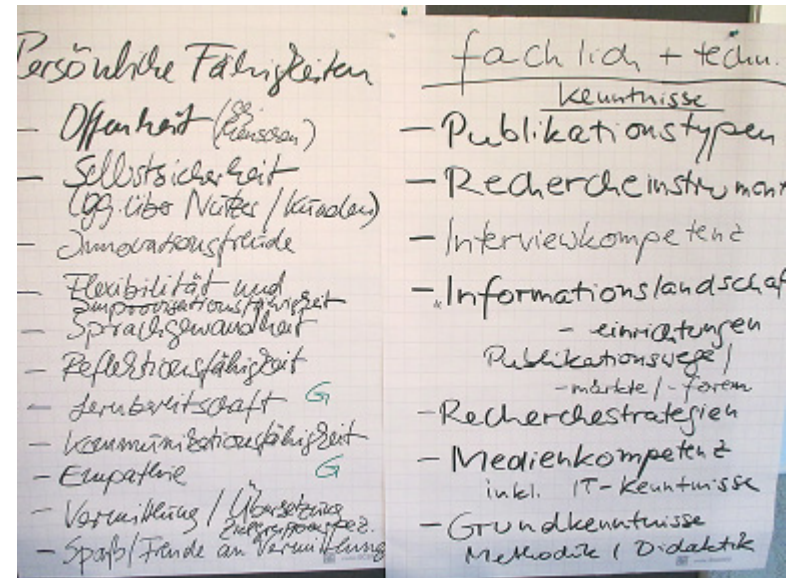 Persönliche Fähigkeiten
- Offenheit (gg. Menschen)
- Selbstsicherheit
(gg. über Nutzer / Kunden)
- Innovationsfreude
- Flexibilität und
Improvisationsfähigkeit
- Sprachgewandheit
- Reflektionsfähigkeit
- Lernbereitschaft G
- Kommunikationsfähigkeit
- Empathie G
- Vermittlung / Übersetzung
zielgruppenspez.
- Spaß / Freude an Vermittlung
fachlich + techn.
Kenntnisse
- Publikationstypen
- Rechercheinstrument
- Interviewkompetenz
- Informationslandschaf
- einrichtungen
Publikationswege /
- märkte / - foren
- Recherchestrategien
- Medienkompetenz
inkl. IT-Kenntnisse
- Grundkenntnisse
Methodik / Didaktik